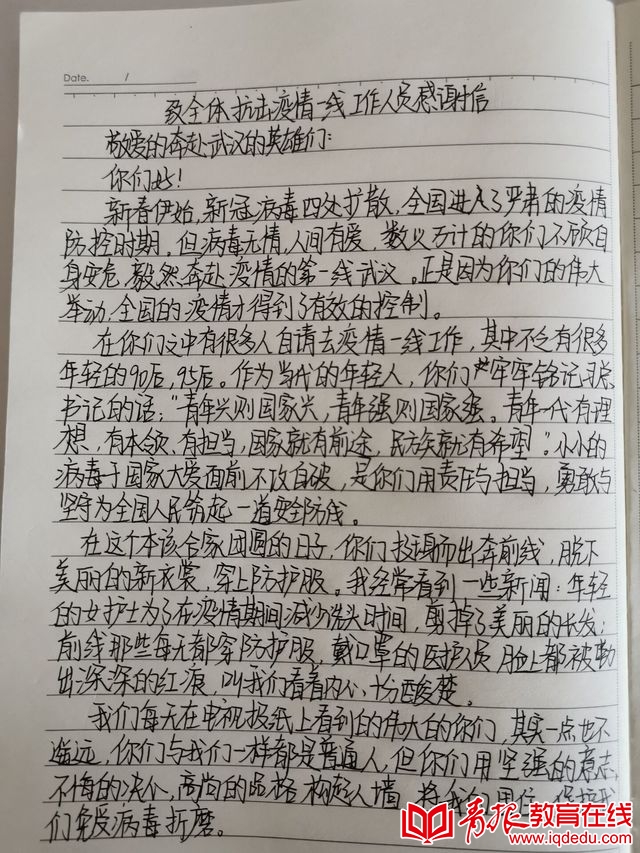 Date.    /
致全体抗击疫情一线工作人员感谢信
敬爱的奔赴武汉的英雄们:
你们好!
新春伊始,新冠病毒四处扩散,全国进入了严肃的疫情
防控时期。但病毒无情,人间有爱,数以万计的你们不顾自
身安危,毅然奔赴疫情的第一线武汉。正是因为你们的伟大
举动,全国的疫情才得到了有效的控制。
在你们之中有很多人自请去疫情一线工作,其中不乏有很多
年轻的90后,95后。作为当代的年轻人,你们牢牢铭记习总
书记的话:"青年兴则国家兴,青年强则国家强。青年一代有理
想,有本领,有担当,国家就有前途,民族就有希望"。小小的
病毒于国家大爱面前不攻自破,是你们用责任与担当,勇敢与
坚守为全国人民筑起一道安全防线。
在这个本该合家团圆的日子,你们挺身而出奔前线,脱下
美丽的新衣裳,穿上防护服。我经常看到一些新闻:年轻
的女护士为了在疫情期间减少洗头时间,剪掉了美丽的长发;
前线那些每天都穿防护服,戴口罩的医护人员脸上都被勒
出深深的红痕,叫我们看着内心十分酸楚。
我们每天在电视报纸上看到的伟大的你们,其实一点也不
遥远,你们与我们一样都是普通人,但你们用坚强的意志,
不悔的决心,高尚的品格构起人墙,将我们围住,保护我
们免受病毒折磨。
青报教育在线
www.iqdedu.com